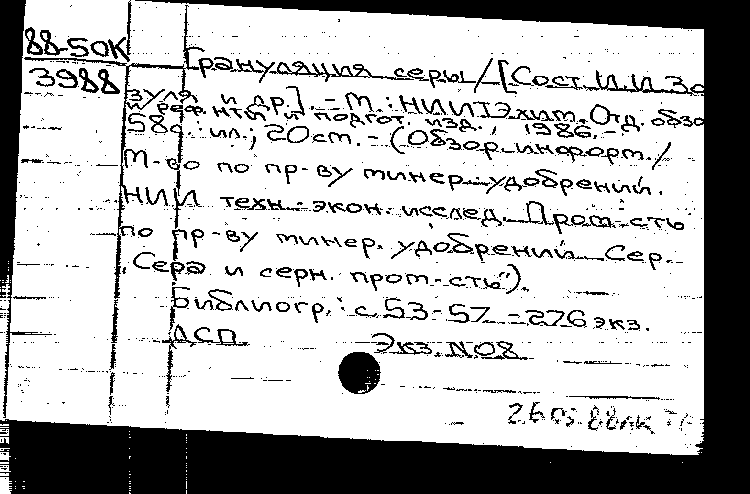 88-50К
3988
Грануляция серы / [Сост. И.И. Зо
зуля и др.]. - М.: НИИТЭхим. Отд. обзо
и реф. НТИ и подгот. изд., 1986. -
58с.: ил.; 20см. - (Обзор. информ. /
М-во по пр-ву минер. удобрений.
НИИ техн.-экон. исслед. Пром-сть
по пр-ву минер. удобрений. Сер.
"Сера и серн. пром-сть").
Библиогр.: с 53-57. - 276 экз.
ДСП Экз. N08
26 05 88ЛК